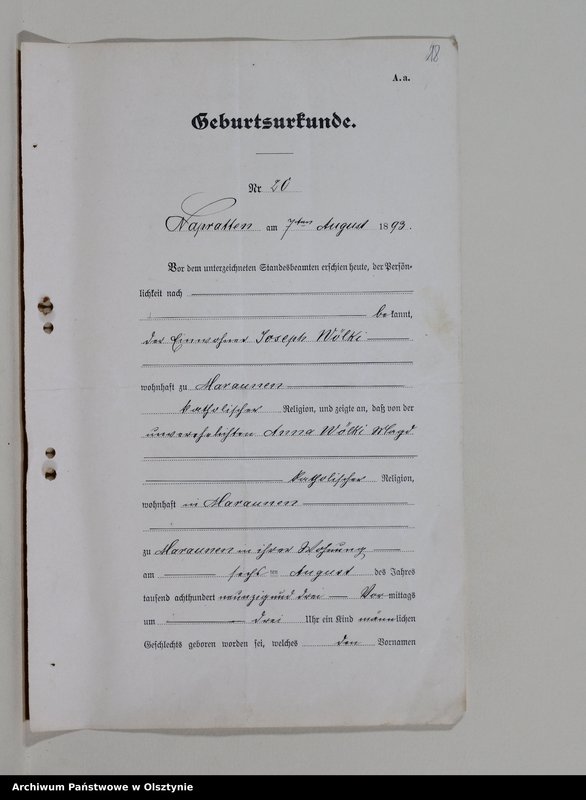 18
A. a.
Geburtsurkunde.
Nr 20
Napratten am 7ten August 1893.
Vor dem unterzeichneten Standesbeamten erschien heute, der Persön-
lichkeit nach
bekannt,
der Einwohner Joseph Wölki
wohnhaft zu Maraunen
katholischer Religion, und zeigte an, daß von der
unverehelichten Anna Wölki Magd
katholischer Religion,
wohnhaft in Maraunen
zu Maraunen in ihrer Wohnung
am sechsten August des Jahres
tausend achthundert neunzig und drei Vormittags
um drei Uhr ein Kind männlichen
Geschlechts geboren worden sei, welches den Vornamen
Archiwum Państwowe w Olsztynie